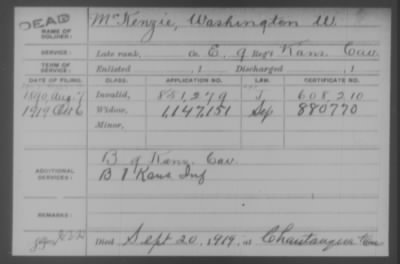 DEAD
NAME OF SOLDIER: McKenzie, Washington W.
SERVICE: Late rank, Co. E, 9 Reg't Kans. Cav.
TERM OF SERVICE: Enlisted , 1 Discharged , 1
DATE OF FILING. CLASS. APPLICATION NO. LAW. CERTIFICATE NO.
1890 Aug. 7 Invalid, 851,279 J 608,210
1919 Oct 6 Widow, 1,147,151 Sep 880770
Minor,
ADDITIONAL SERVICES: B 9 Kans. Cav.
B 1 Kans Inf
REMARKS:
Died Sept 20, 1919, at Chautauqua Kan